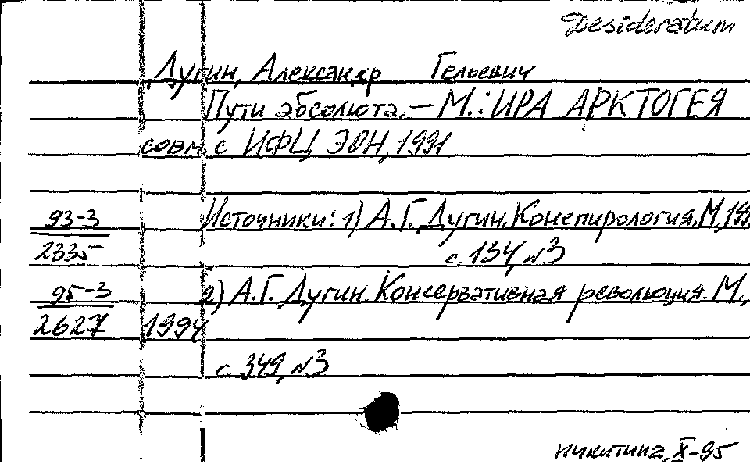 Desideratum
Дугин, Александр Гельевич
Пути абсолюта. – М.: ИРА АРКТОГЕЯ
совм. с ИФЦ ЭОН, 1991
93-3 Источники: 1) А.Г. Дугин. Конспирология, М, 199
2335 с. 134, №3
95-3 2) А.Г. Дугин. Консервативная революция. М.,
2627 1994
с 349, №3
Никитина, X-95